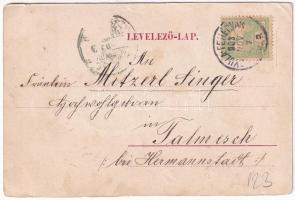 LEVELEZŐ-LAP.
An
Fräulein Mitzerl Singer
in
Talmesch
(bei Hermannstadt)
123